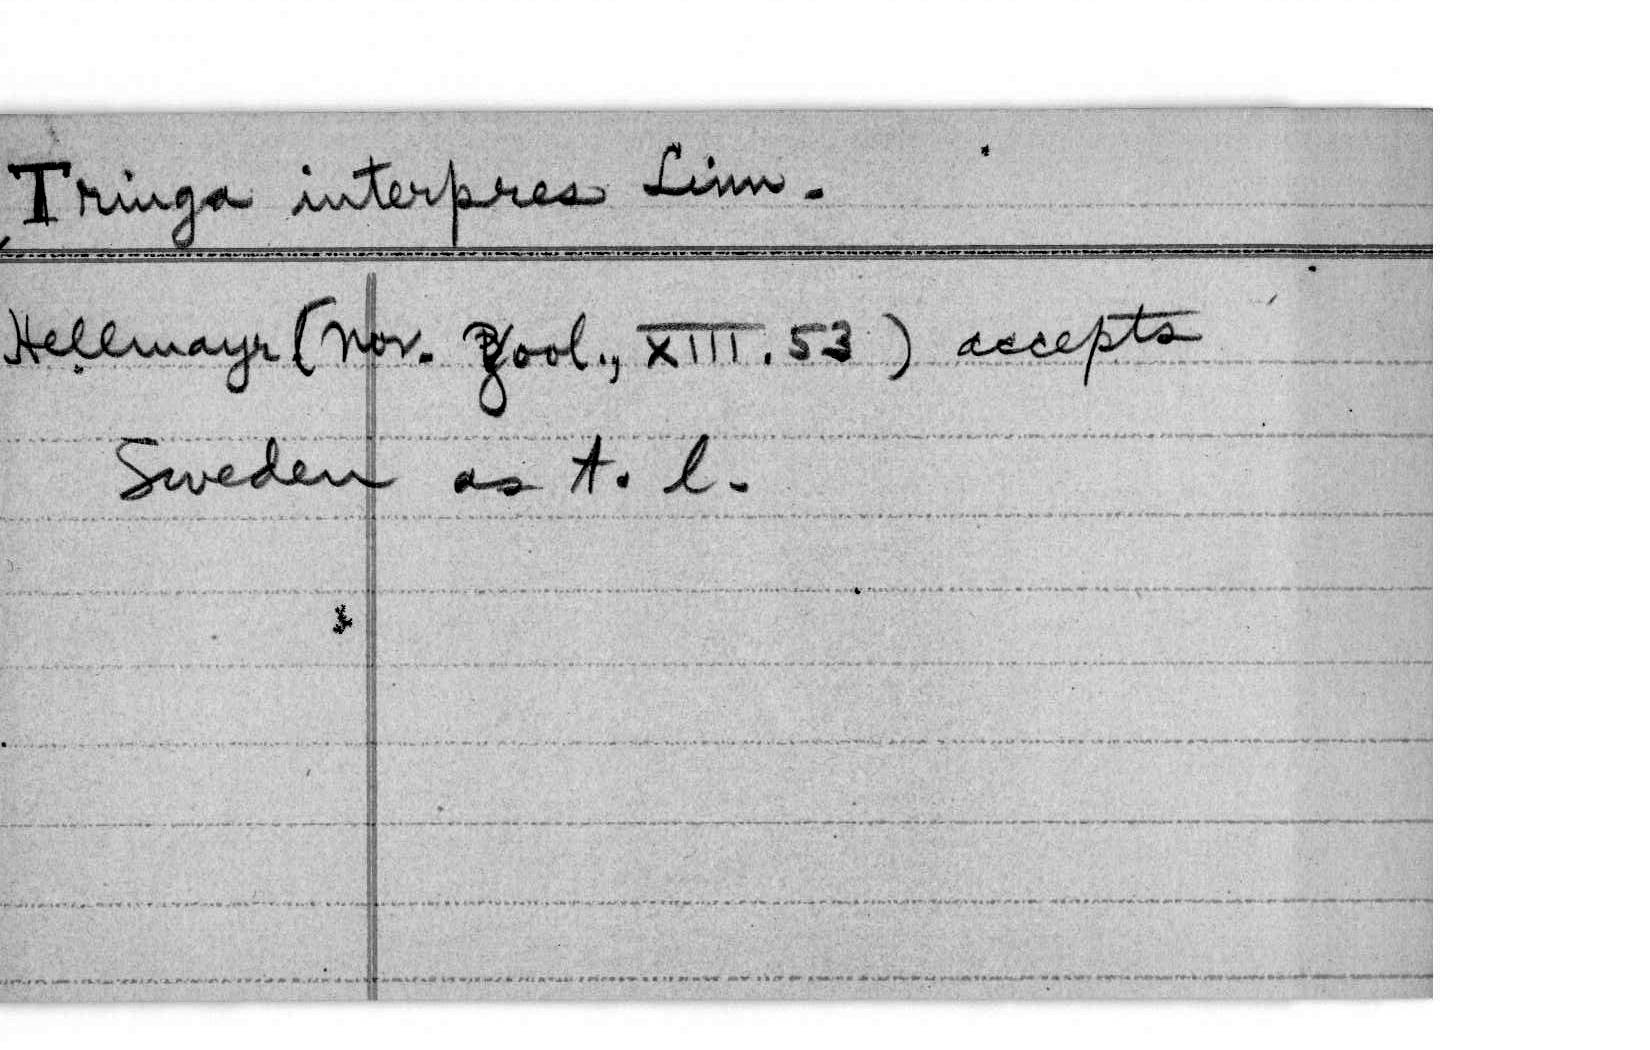 Tringa interpres Linn.
Hellmayr (Nov. Zool., XIII. 53) accepts
Sweden as t. l.